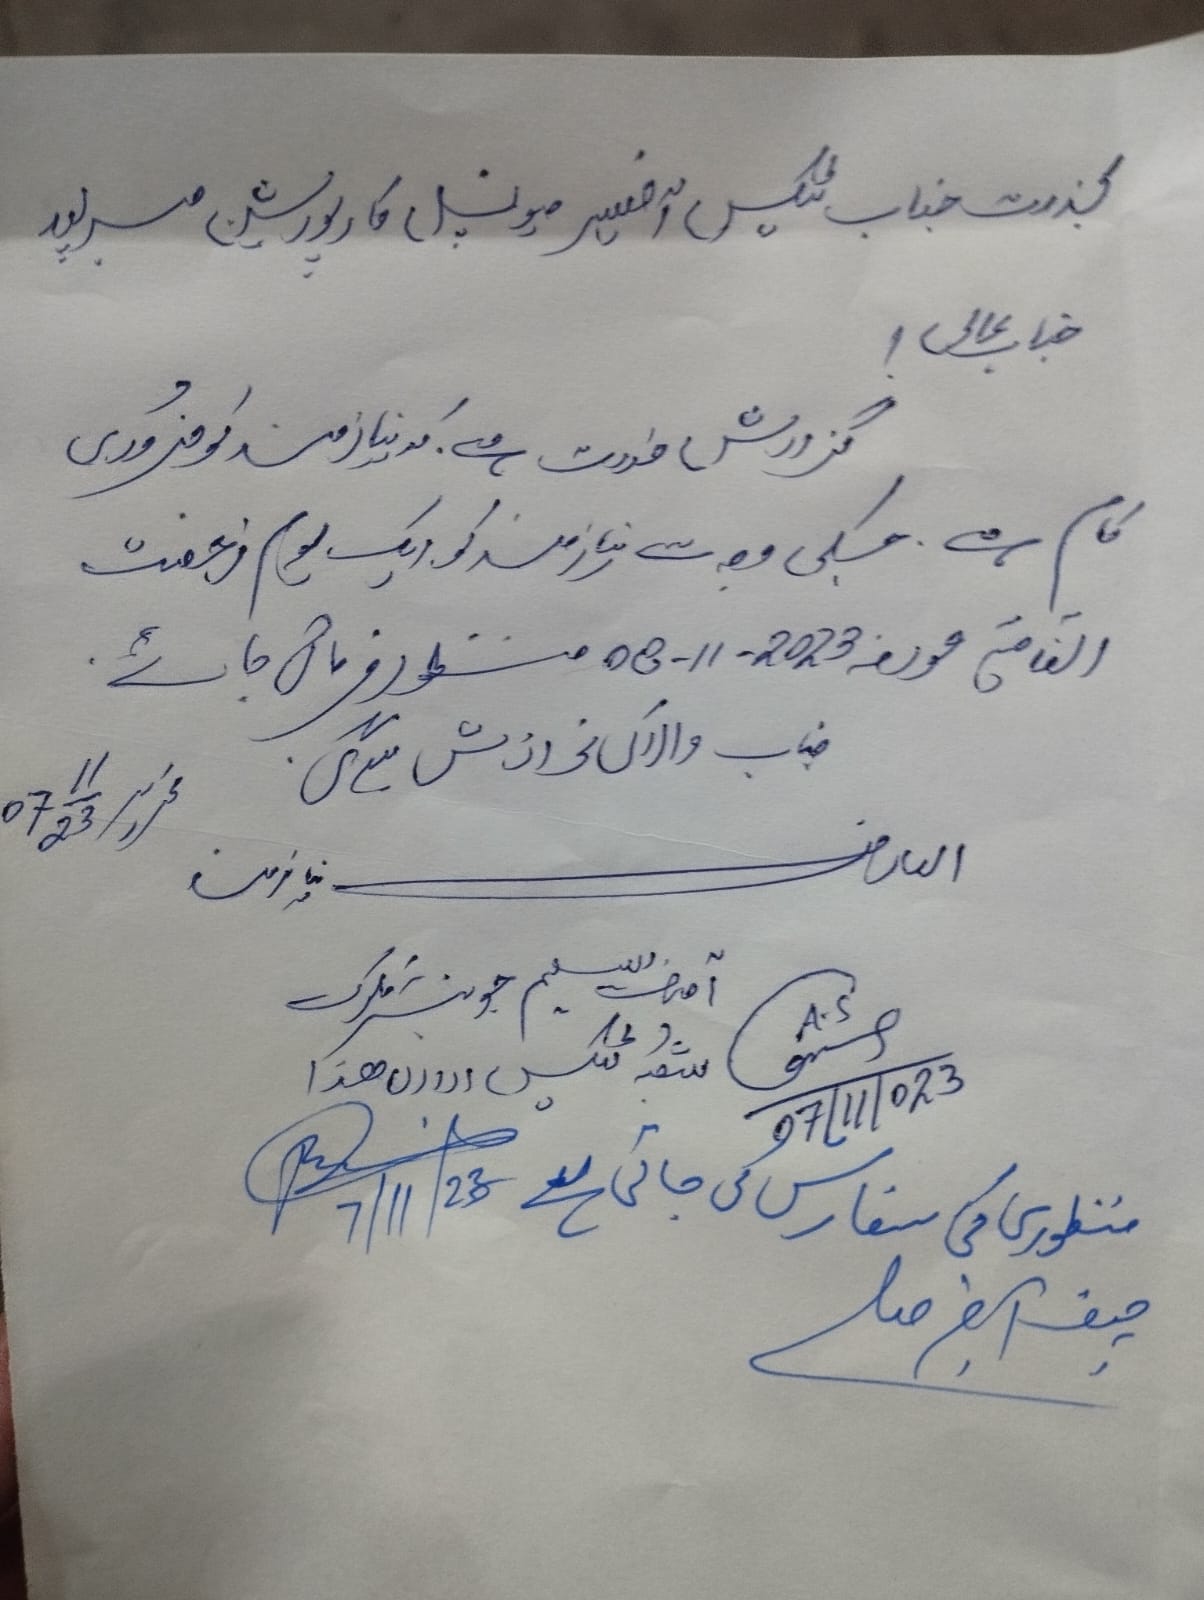 بخدمت جناب ٹیکس آفیسر میونسپل کارپوریشن میرپور
جناب عالی!
گزارش خدمت ہے۔ کہ نیازمند کو ضروری
کام ہے۔ جسکی وجہ سے نیازمند کو ایک یوم رخصت
اتفاقیہ مورخہ 08-11-2023 منظور فرمائی جائے۔
جناب والا کی نوازش ہوگی۔
07 11/23
العارض نیازمند
وسیم جونیئر کلرک
شعبہ ٹیکس ادارہ ھذا
A.S
07/11/023
منظوری کی سفارش کی جاتی ہے
7/11/23
چیف آفیسر صاحب